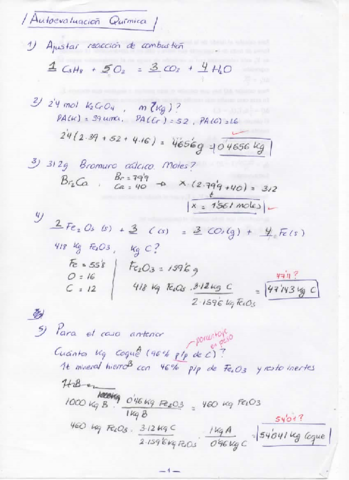 Autoevaluación Química
1) Ajustar reacción de combustión
1 C3H8 + 5 O2 = 3 CO2 + 4 H2O
2) 2'4 mol K2CrO4, m (kg)?
PA(K) = 39 uma, PA(Cr) = 52, PA(O) = 16
2'4 (2·39 + 52 + 4·16) = 465'6 g = 0'4656 kg
3) 312 g Bromuro cálcico Moles?
Br2Ca. Br = 79'9 Ca = 40 → x (2·79'9 + 40) = 312
x = 1'561 moles
4)
2 Fe2O3 (s) + 3 C (s) = 3 CO2 (g) + 4 Fe (s)
418 kg Fe2O3, kg C?
Fe = 55'8
O = 16
C = 12
Fe2O3 = 159'6 g
418 kg Fe2O3 · 3·12 kg C / 2·159'6 kg Fe2O3 = 47'143 kg C
47'1?
5) Para el caso anterior
porcentaje en peso
Cuánta kg coque A (96% p/p de C)?
1t mineral hierro B con 46% p/p de Fe2O3 y resto inertes
1000 kg B · 0'46 kg Fe2O3 / 1 kg B = 460 kg Fe2O3
460 kg Fe2O3 · 3·12 kg C / 2·159'6 kg Fe2O3 · 1 kg A / 0'96 kg C = 54'041 kg Coque
54'0?
- 1 -